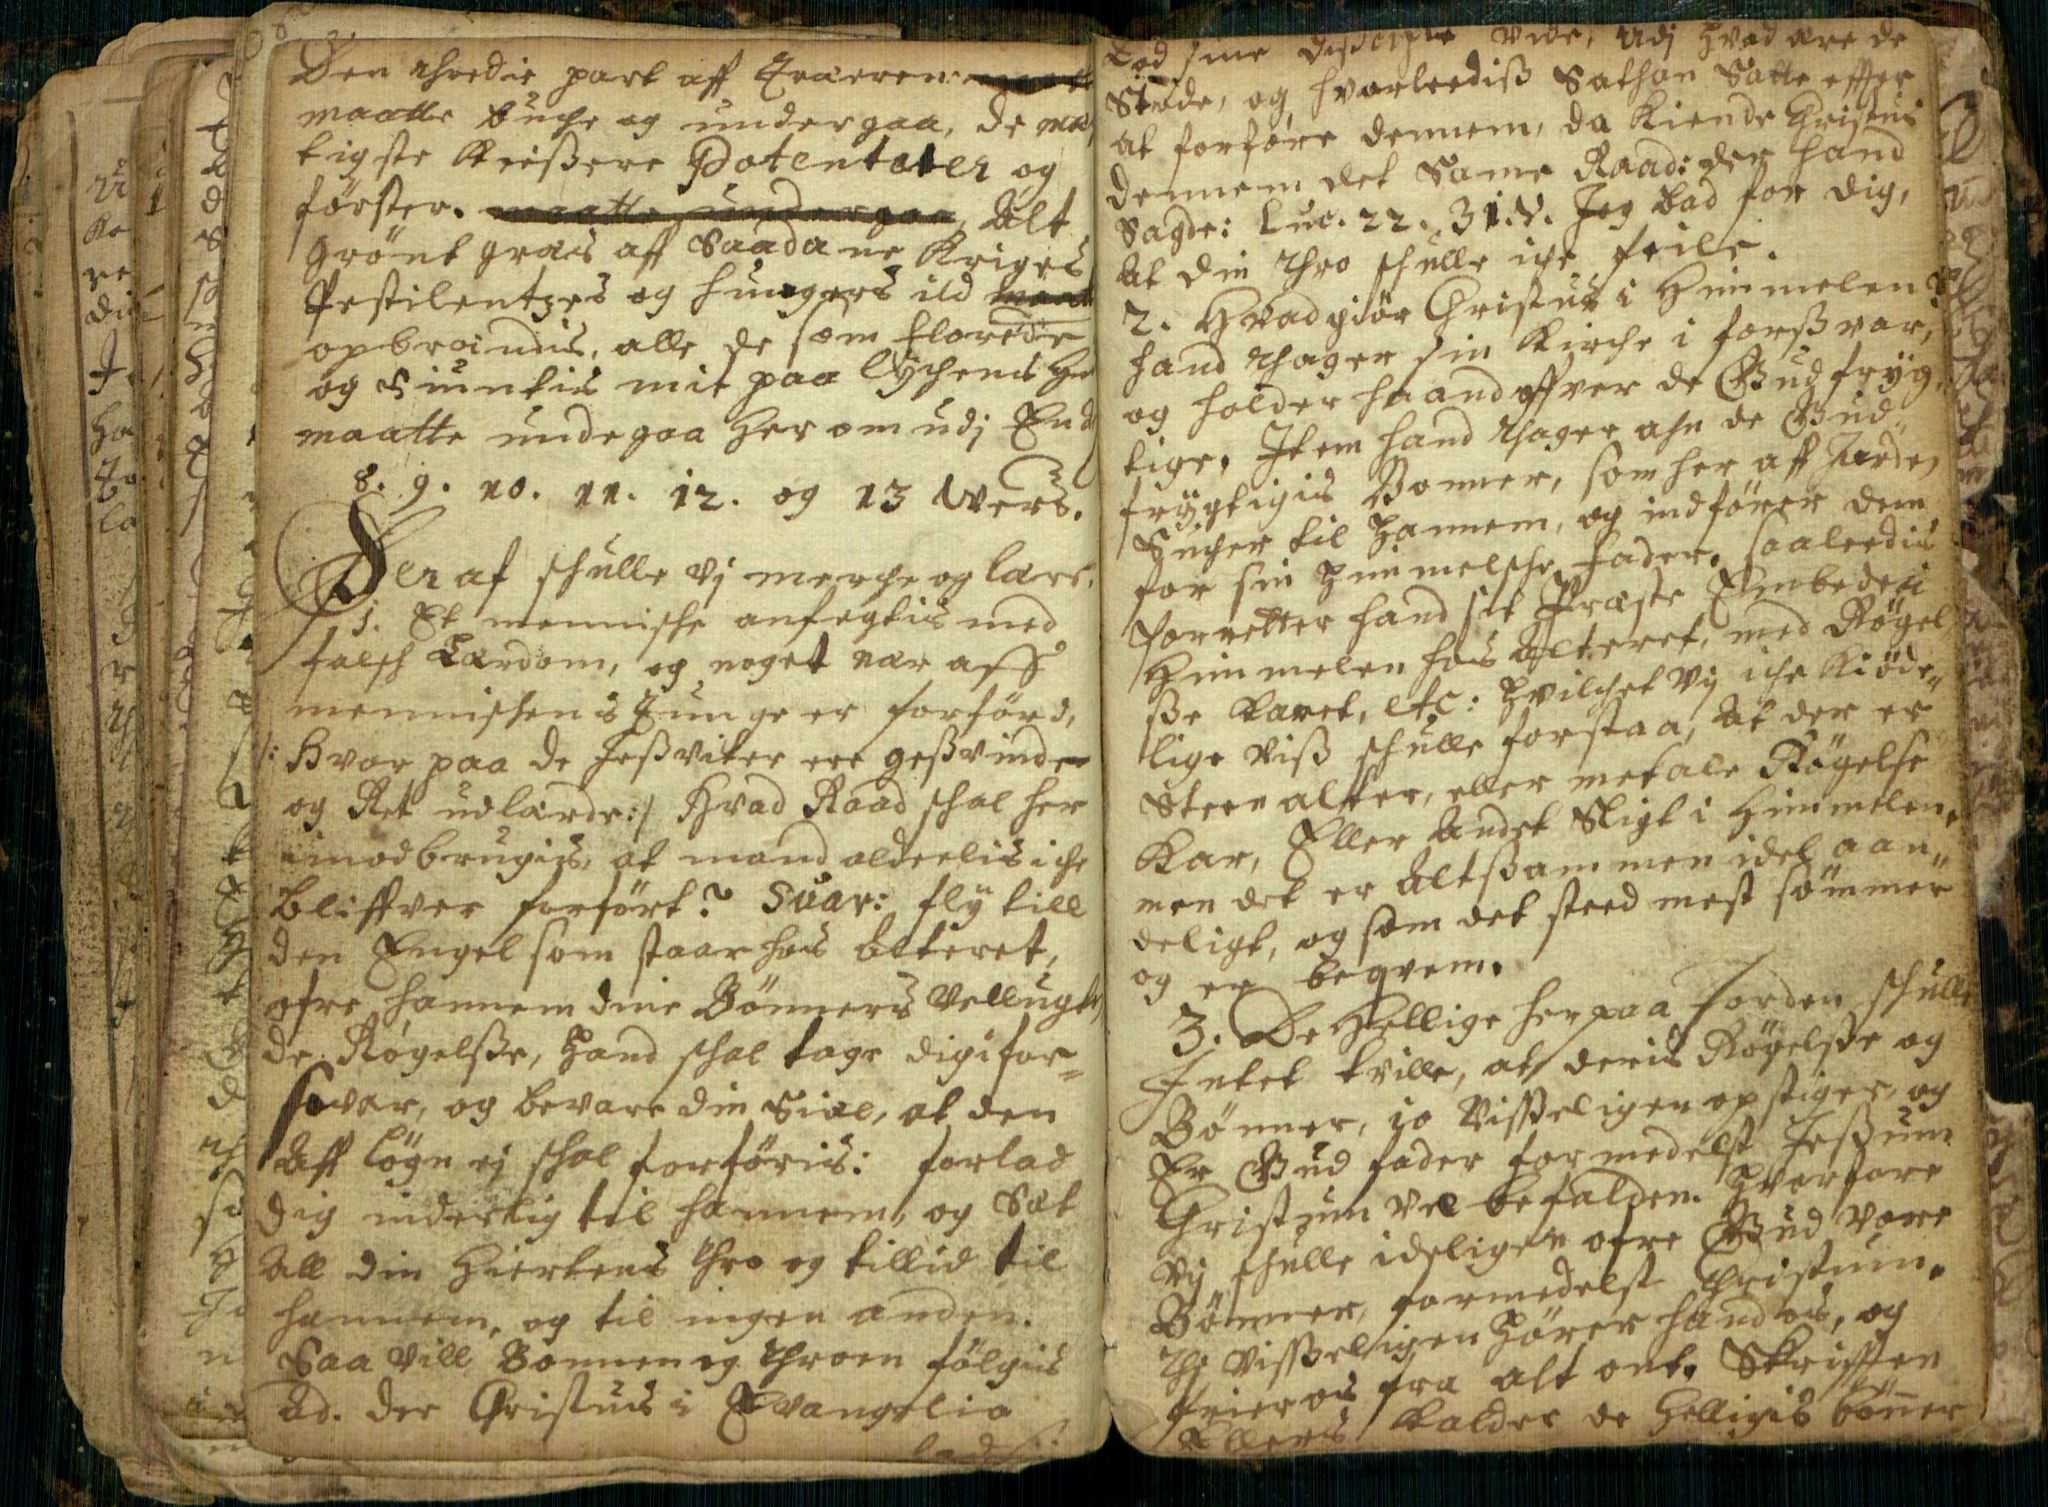 Den thredie part aff Træeren:
maatte buche og undergaa, de mec
tigste Keißere Potentater og
förster. maatte undergaa, Alt
grönt græs aff Saadane Kriges
Pestilentzes og hungers ild
opbrændis, alle de som florede
og Siuntis mit paa lychens
maatte undegaa her om udj End
8. 9. 10. 11. 12. og 13 Vers.
Deraf schulle vj merche og lære.
1. Et mennische anfegtis med
falsch Lærdom, og noget nær aff
mennischens Tunge er forförd,
/: Hvor paa de Jeßviter ere geßvinde
og Ret udlærde:/ Hvad Raad schal her
imod brugis, at mand aldeelis iche
bliffver forfört? Svar: fly till
den Engel som staar hos alteret,
ofre hannem dine Bönners Vellugten
de Rögelße, Hand schal tage dig i for-
svar, og bevare din Siæl, at den
Aff lögn ej schal forföris: forlad
dig inderlig til hannem, og Sæt
All din Hiertens thro og tillid til
hannem, og til ingen anden.
Saa vill Bonnen og throen fölgis
ad. der Christus i Evangelio
lod sine
Lod sine Disciple vide, Udj Hvad vare de
Stode, og hvorleediß Sathan Satte effter
at forföre dennem, da Kiende Christus
dennem det Same Raad: der hand
Sagde: Luc. 22. 31. V. Jeg bad for dig,
At din thro schulle iche feile.
2. Hvad giör Christus i Himmelen?
hand thager sin Kirche i forßvar,
og holder haand offver de Gudfryg-
tige. Item hand thager ahn de Gud-
frygtigis Bonner, som her aff Jorden
Sucher til Hannem, og indförer dem
for sin Himmelsche fader. saaleedis
forretter hand sit Præste Embede i
Himmelen hos Alteret, med Rögel
ße Karet, etc: hvilchet vj iche Kiöde-
lige viß schulle forstaa, At der er
Steen alter, eller metale Rögelse
Kar, Eller Andet Sligt i Himmelen,
men det er Altßammen idel aan-
deligt, og som det steed mest sömmer
og er beqvem.
3. De Hellige her paa Jorden schulle
Intet tville, at deris Rögelße og
Bönner, jo Visseligen opstiger, og
Er Gud fader formedelst Jeßum
Christum vel befalden. Hvorfore
vj schulle ideligen ofre Gud vore
Bönner, formedelst Christum.
Thj visseligen Hörer hand os, og
frier os fra alt ont. Skrifften
Ellers kalder de Helligis böner